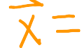 \vec{x} =